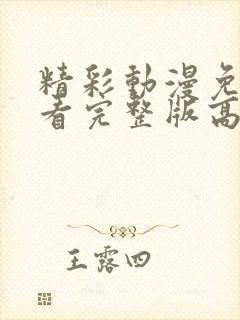 精彩動漫免
看完整版高
王露四